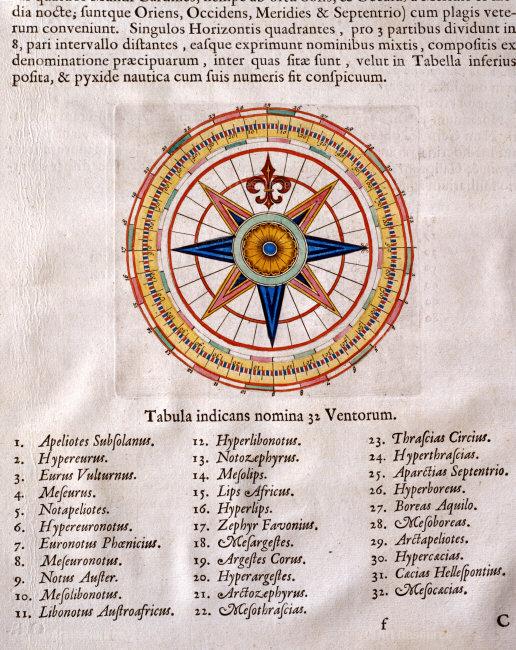 dia nocte; suntque Oriens, Occidens, Meridies & Septentrio) cum plagis vete-
rum conveniunt. Singulos Horizontis quadrantes, pro 3 partibus dividunt in
8, pari intervallo distantes, easque exprimunt nominibus mixtis, compositis ex
denominatione præcipuarum, inter quas sitæ sunt, velut in Tabella inferius
posita, & pyxide nautica cum suis numeris fit conspicuum.
Tabula indicans nomina 32 Ventorum.
1. Apeliotes Subsolanus.
2. Hypereurus.
3. Eurus Vulturnus.
4. Meseurus.
5. Notapeliotes.
6. Hypereuronotus.
7. Euronotus Phœnicius.
8. Meseuronotus.
9. Notus Auster.
10. Mesolibonotus.
11. Libonotus Austroafricus.
12. Hyperlibonotus.
13. Notozephyrus.
14. Mesolips.
15. Lips Africus.
16. Hyperlips.
17. Zephyr Favonius.
18. Mesargestes.
19. Argestes Corus.
20. Hyperargestes.
21. Arctozephyrus.
22. Mesothrascias.
23. Thrascias Circius.
24. Hyperthrascias.
25. Aparctias Septentrio.
26. Hyperboreus.
27. Boreas Aquilo.
28. Mesoboreas.
29. Arctapeliotes.
30. Hypercæcias.
31. Cæcias Hellespontius.
32. Mesocæcias.
f
C